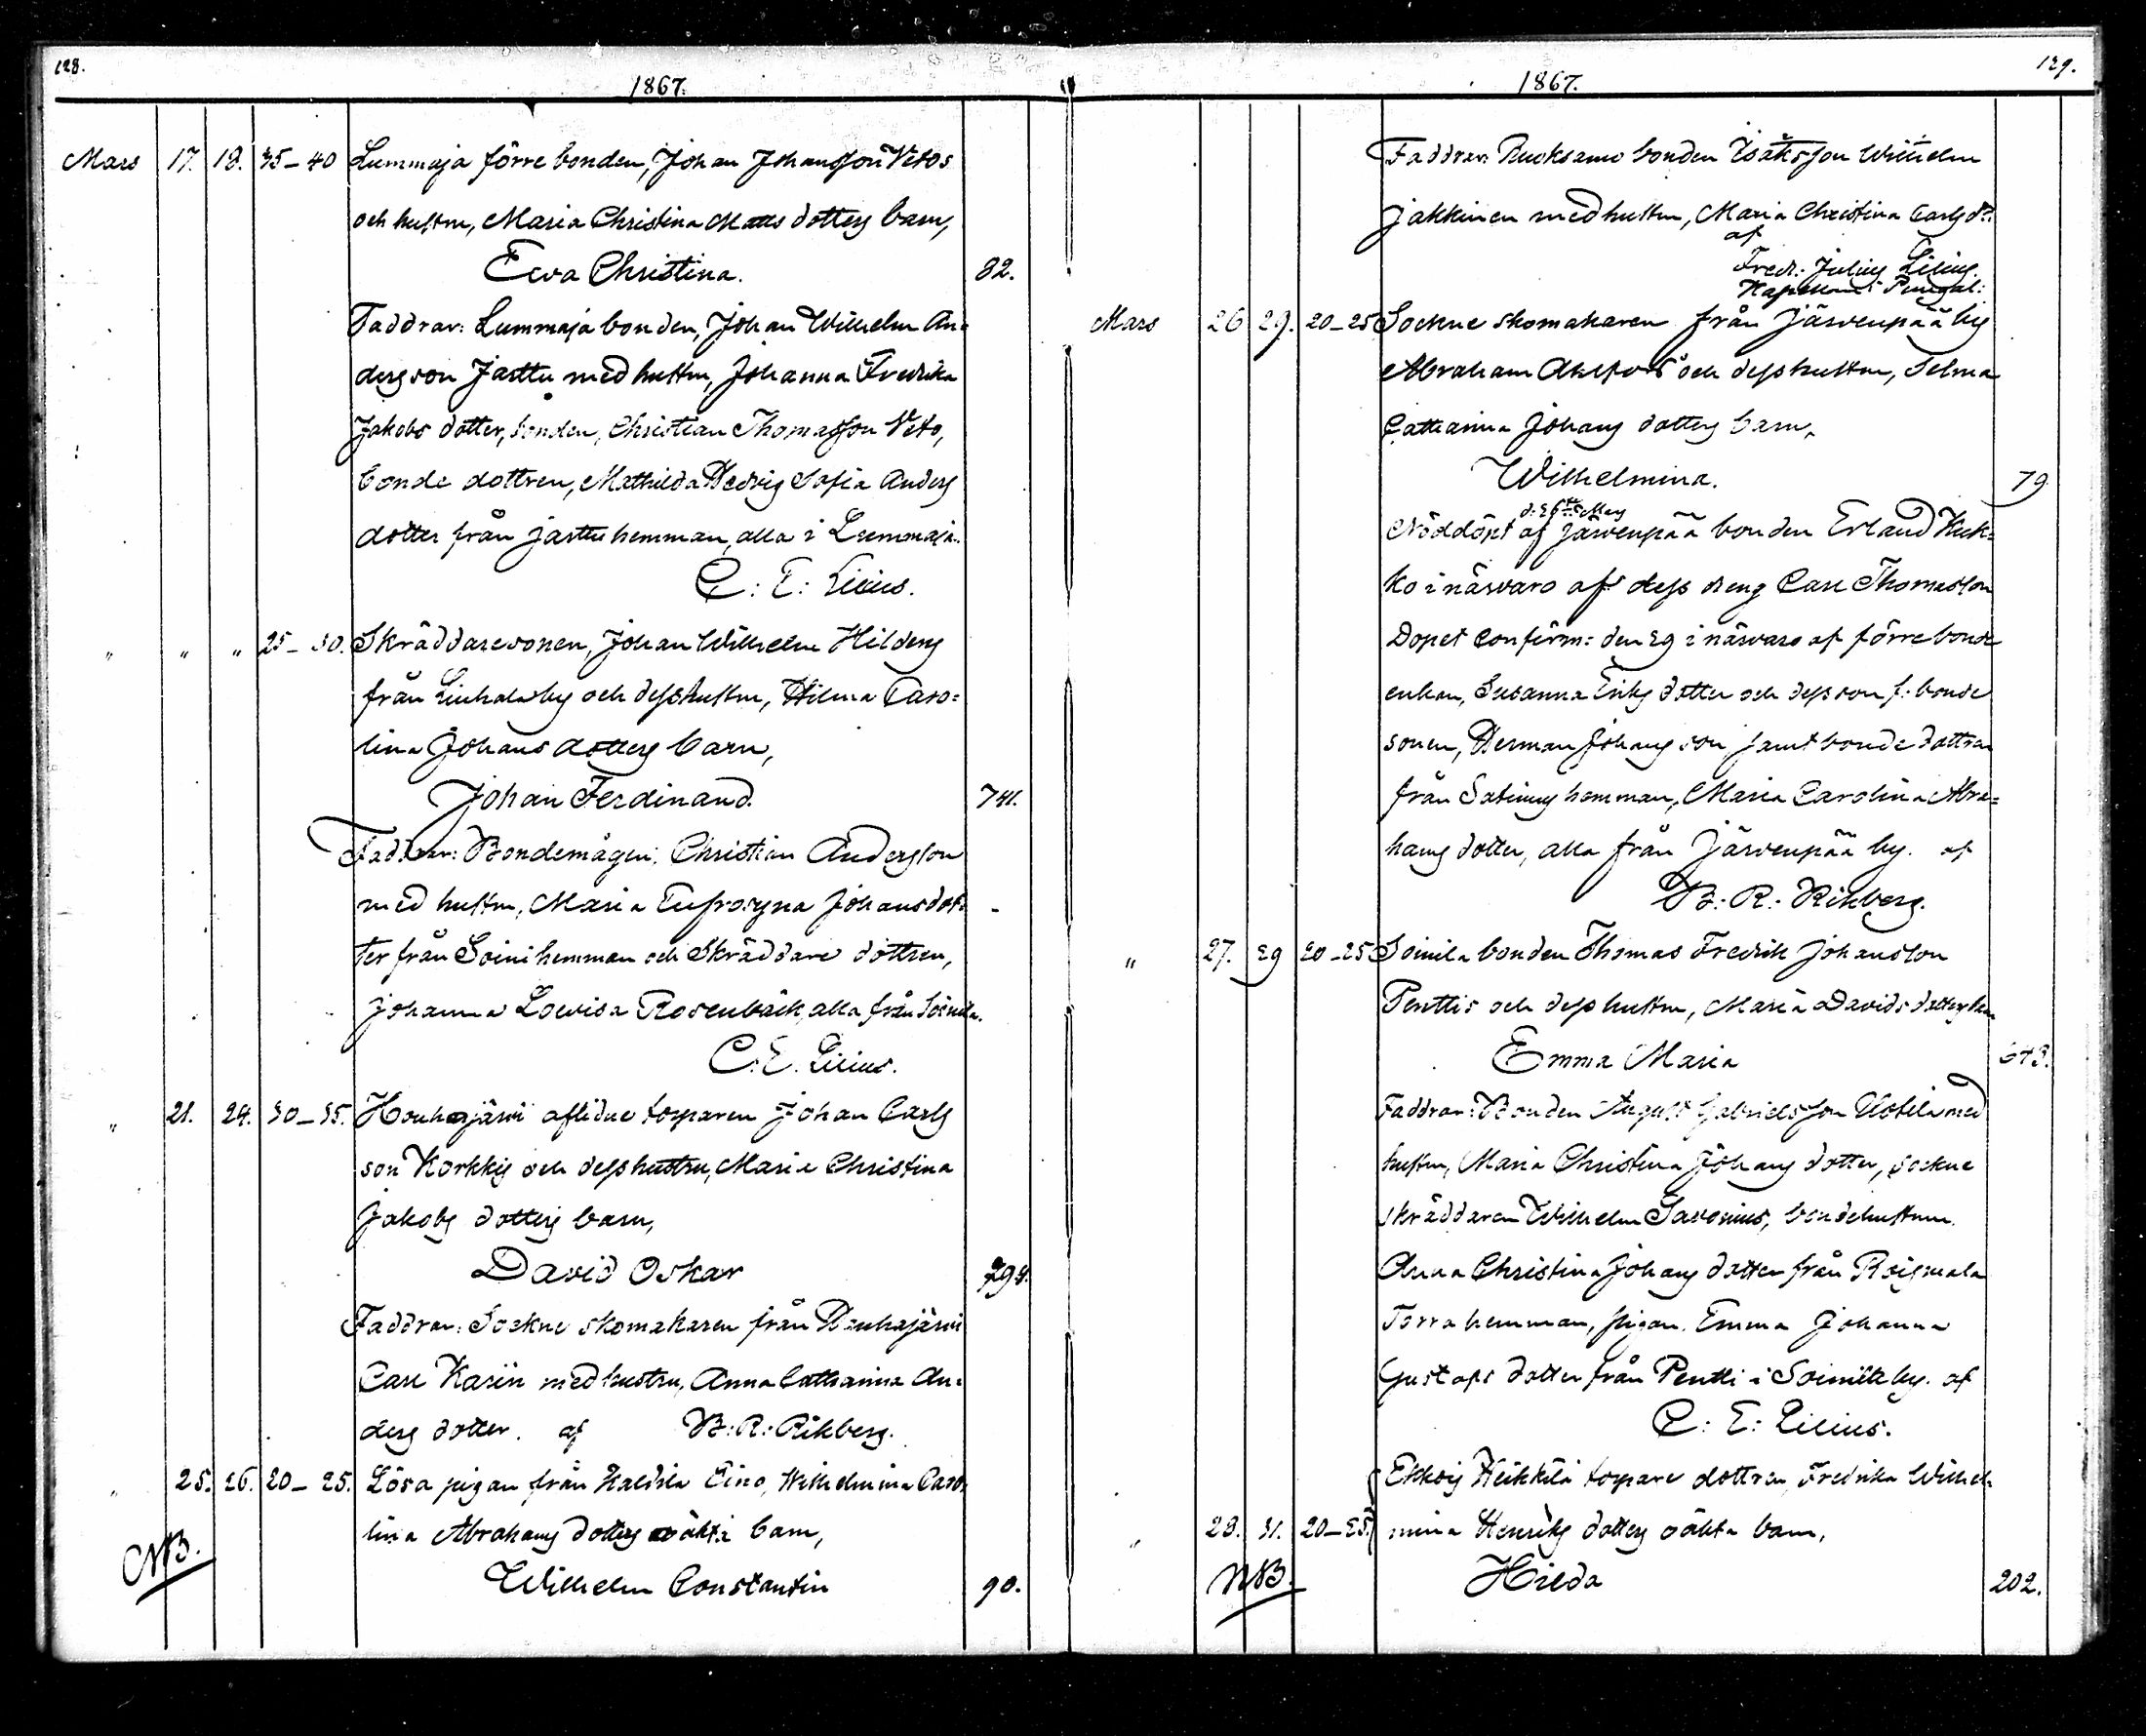 128.
1867.
Mars 17. 18. 35-40 Lummaja förre bonden, Johan Johansson Vetos
och hustru, Maria Christina Matts dotters barn,
Ewa Christina. 82.
Faddrar: Lummaja bonden, Johan Wilhelm An=
dersson Jarttu med hustru, Johanna Fredrika
Jakobs dotter, bonden, Christian Thomasson Veto,
bonde dottren, Mathilda Hedvig Sofia Anders
dotter från Jarttu hemman, alla i Lummaja.
C: E: Lilius.
" " " 25-30. Skräddaresonen, Johan Wilhelm Hildens
från Liuhala by och dess hustru, Hilma Caro=
lina Johans dotters barn,
Johan Ferdinand. 741.
Faddrar: Bondemågen: Christian Andersson
med hustru, Maria Eufrosyna Johansdot=
ter från Soini hemman och Skräddare dottren,
Johanna Lovisa Rosenbäck, alla från Soinila.
C. E. Lilius.
" 21. 24. 30-35. Houhajärvi aflidne torparen Johan Carls
son Korkkis och dess hustru, Maria Christina
Jakobs dotters barn,
David Oskar
Faddrar: Sockne skomakaren från Houhajärvi
Carl Karin med hustru, Anna Catharina An=
ders dotter. af B: R: Rikberg.
" 25. 26. 20-25. Lösa pigan från Haldila Eino, Wilhelmina Caro=
lina Abrahams dotters oäkta barn,
NB.
Wilhelm Constantin 90.
129.
1867.
Faddrar: Isaksson Wilhelm
Jakkinen med hustru, Maria Christina Carls dr.
af
Fredr: Julius Lilius.
Mars 26 29. 20-25 Sockne skomakaren från Järvenpää by
Abraham Ahlfors och dess hustru, Selma
Catharina Johans dotters barn,
Wilhelmina. 79
Nöddöpt af Järvenpää bonden Erland Kuk=
ko i närvaro af dess dreng Carl Thomasson
Dopet Confirm: den 29 i närvaro af förre bonde
enkan, Susanna Eriks dotter och dess son f: bonde
sonen, Herman Johans son samt bonde dottren
från hemman, Maria Carolina Abra=
hams dotter, alla från Järvenpää by. af
B: R: Rikberg.
" 27. 29 20-25 Soinila bonden Thomas Fredrik Johansson
Penttis och dess hustru, Maria Davids dotters barn
Emma Maria 643.
Faddrar: Bonden August Gabrielsson Uotila med
hustru, Maria Christina Johans dotter, sockne
skräddaren Wilhelm Savonius, bondehustrun
Anna Christina Johans dotter från Roismala
Torra hemman, pigan Emma Johanna
Gustafs dotter från Pentti i Soinila by. af
C: E: Lilius.
Ekkois Heikkilä torpare dottren, Fredrika Wilhel=
" 28. 31. 20-25. mina Henriks dotters oäkta barn,
NB.
Hilda 202.